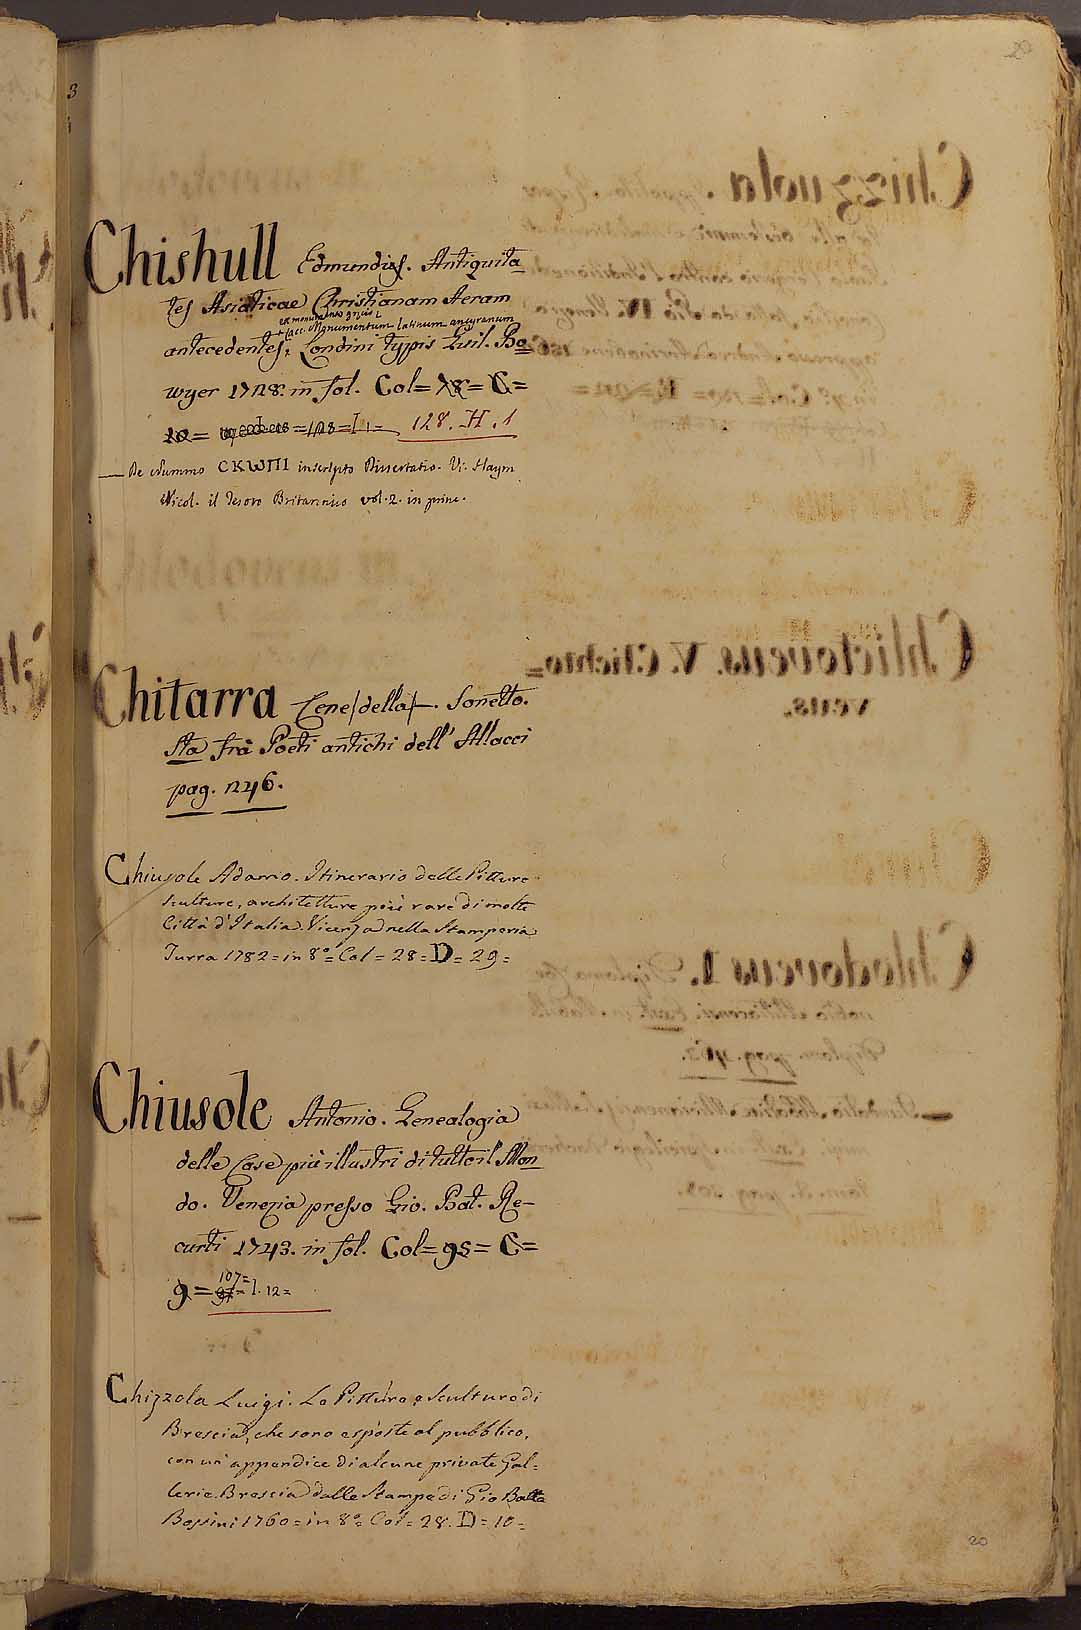 20
3
Chishull Edmundi. Antiquita=
tes Asiaticae Christianam Aeram
ex monumentis graecis
+ acc. Monumentum latinum ancyranum
antecedentes. Londini typis Guil. Bo=
wyer 1728. in fol. Col= 78= C=
20= =128=I 1= 128. H. 1
— De Nummo CKWΠI inscripto Dissertatio. V. Haym
Nicol. il Tesoro Britannico vol. 2. in princ.
Chitarra Cene (della) —. Sonetto.
Sta frà Poeti antichi dell' Allacci
pag. 246.
Chiusole Adamo. Itinerario delle Pitture
sculture, architetture più rare di molte
Città d'Italia. Vicenza nella Stamperia
Turra 1782= in 8°= Col= 28= D= 29=
Chiusole Antonio. Genealogia
delle Case più illustri di tutto il Mon
do. Venezia presso Gio. Bat. Re-
curti 1743. in fol. Col= 95= C=
107=
9= I. 12=
Chizzola Luigi. Le Pitture e Sculture di
Brescia, che sono esposte al pubblico,
con un' appendice di alcune private Gal=
lerie. Brescia dalle Stampe di Gio Batta
Bossini 1760= in 8°= Col= 28. D= 10=
20